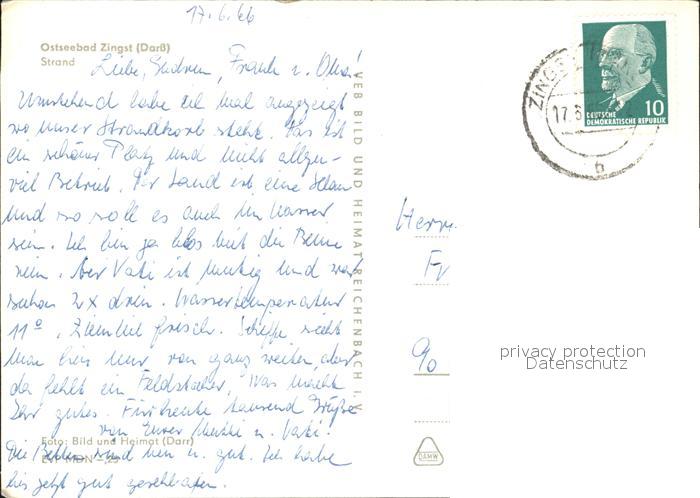 17.6.66
Ostseebad Zingst (Darß)
Strand
Liebe, Gudrun, Frank u. Oma!
Umstehend habe ich mal angezeigt
wo unser Strandkorb steht. Das ist
ein schöner Platz und nicht allzu-
viel Betrieb. Der Sand ist eine
und so soll es auch im Wasser
sein. Ich bin ja blos mit die Beine
rein. Aber Vati ist mutig und war
schon 2x drin. Wassertemperatur
11°, Ziemlich frisch. Schiffe sieht
man hier nur von ganz weiten, aber
da fehlt ein Feldstecher. Was macht
Ihr gutes. Für heute tausend Grüße
von Eurer Mutti u. Vati.
Foto: Bild und Heimat (Darr)
Die Betten sind neu u. gut. Ich habe
EVP MDN -,25
bis jetzt gut geschlafen.
VEB BILD UND HEIMAT REICHENBACH I. V.
ZINGST
17.6.
b
10
DEUTSCHE
DEMOKRATISCHE REPUBLIK
Herrn
Fr
c/o
privacy protection
Datenschutz
DAMW